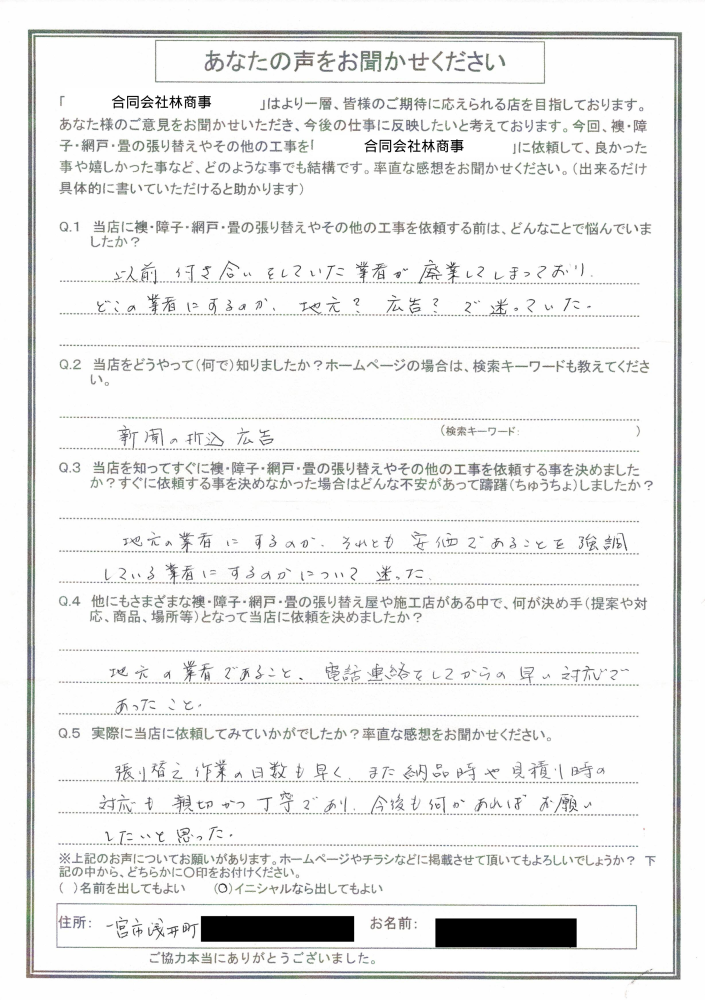 あなたの声をお聞かせください
「 合同会社林商事 」はより一層、皆様のご期待に応えられる店を目指しております。
あなた様のご意見をお聞かせいただき、今後の仕事に反映したいと考えております。今回、襖・障
子・網戸・畳の張り替えやその他の工事を「 合同会社林商事 」に依頼して、良かった
事や嬉しかった事など、どのような事でも結構です。率直な感想をお聞かせください。（出来るだけ
具体的に書いていただけると助かります）
Q.1 当店に襖・障子・網戸・畳の張り替えやその他の工事を依頼する前は、どんなことで悩んでいま
したか？
以前 付き合いをしていた業者が廃業してしまっており、
どこの業者にするのか、地元？ 広告？ で迷っていた。
Q.2 当店をどうやって（何で）知りましたか？ホームページの場合は、検索キーワードも教えてくださ
い。
新聞の折込広告
（検索キーワード： ）
Q.3 当店を知ってすぐに襖・障子・網戸・畳の張り替えやその他の工事を依頼する事を決めました
か？すぐに依頼する事を決めなかった場合はどんな不安があって躊躇（ちゅうちょ）しましたか？
地元の業者にするのか、それとも安価であることを強調
している業者にするのかについて迷った。
Q.4 他にもさまざまな襖・障子・網戸・畳の張り替え屋や施工店がある中で、何が決め手（提案や対
応、商品、場所等）となって当店に依頼を決めましたか？
地元の業者であること、電話連絡をしてからの早い対応で
あったこと。
Q.5 実際に当店に依頼してみていかがでしたか？率直な感想をお聞かせください。
張り替え作業の日数も早く、また納品時や見積り時の
対応も親切かつ丁寧であり、今後も何かあればお願い
したいと思った。
※上記のお声についてお願いがあります。ホームページやチラシなどに掲載させて頂いてもよろしいでしょうか？ 下
記の中から、どちらかに〇印をお付けください。
（ ）名前を出してもよい （〇）イニシャルなら出してもよい
住所： 一宮市浅井町 お名前：
ご協力本当にありがとうございました。